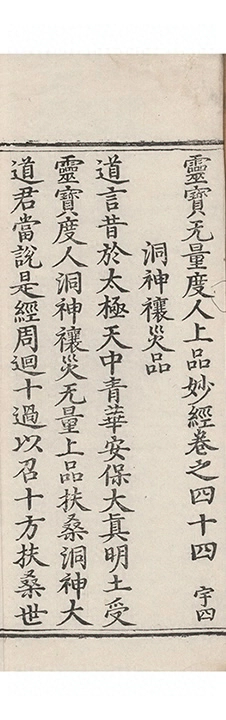 靈寶无量度人上品妙經卷之四十四 宇四
洞神禳災品
道言昔於太極天中青華安保大真明土受
靈寶度人洞神禳災无量上品扶桑洞神大
道君當說是經周迴十過以召十方扶桑世